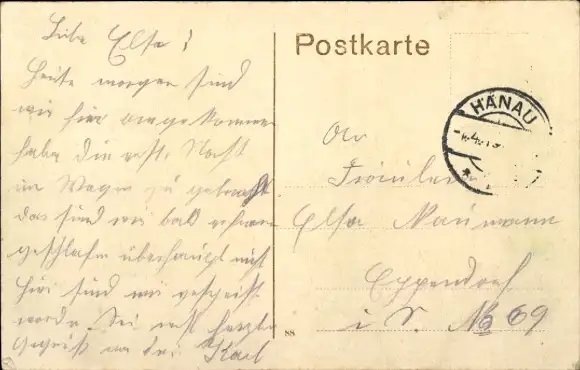 Liebe Elsa!
Heute morgen sind
wir hier angekommen
habe die erste Nacht
im Wagen zu gebracht
das sind wir bald
geschlafen überhaupt nicht
hier sind wir gespeist
worden. Sei herzlich
gegrüßt von Karl
Postkarte
HANAU
An
Fräulein
Elsa Naumann
Eppendorf
i S. No 69
88